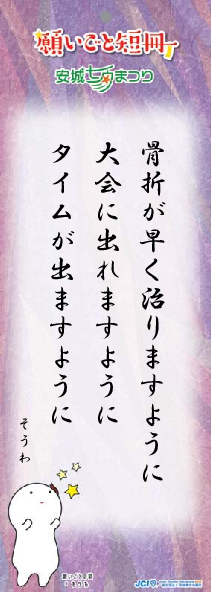 願いごと短冊
安城七夕まつり
骨折が早く治りますように
大会に出れますように
タイムが出ますように
そうわ
JCI